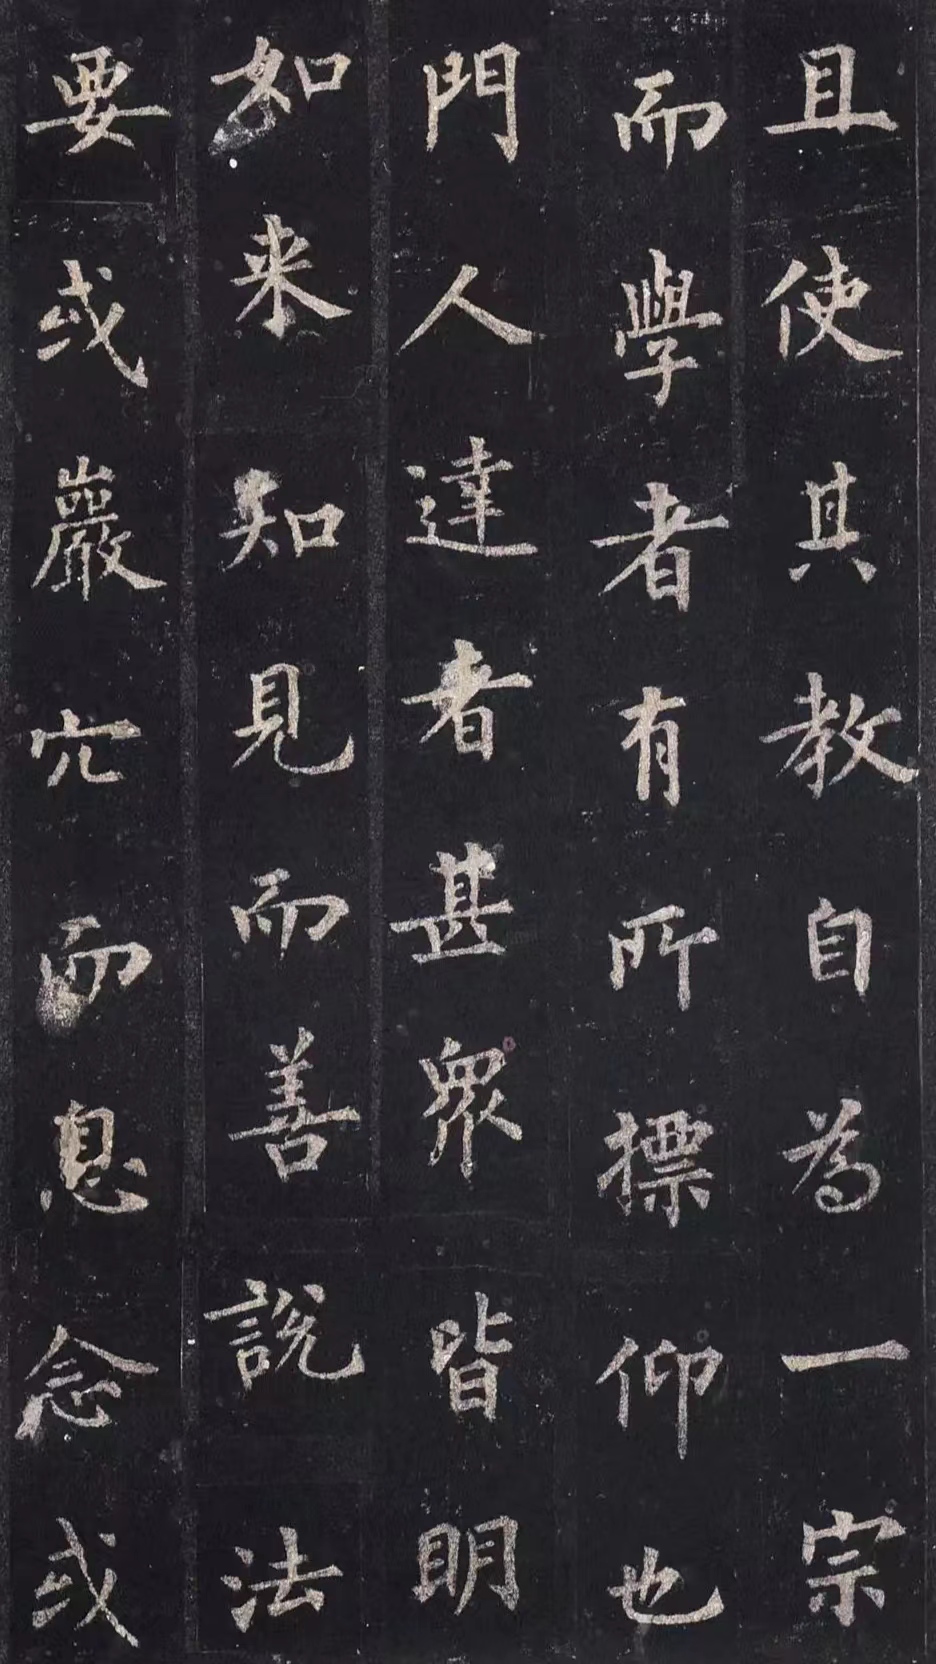 且使其教自為一宗
而學者有所標仰也
門人達者甚眾皆明
如来知見而善說法
要或巖穴而息念或